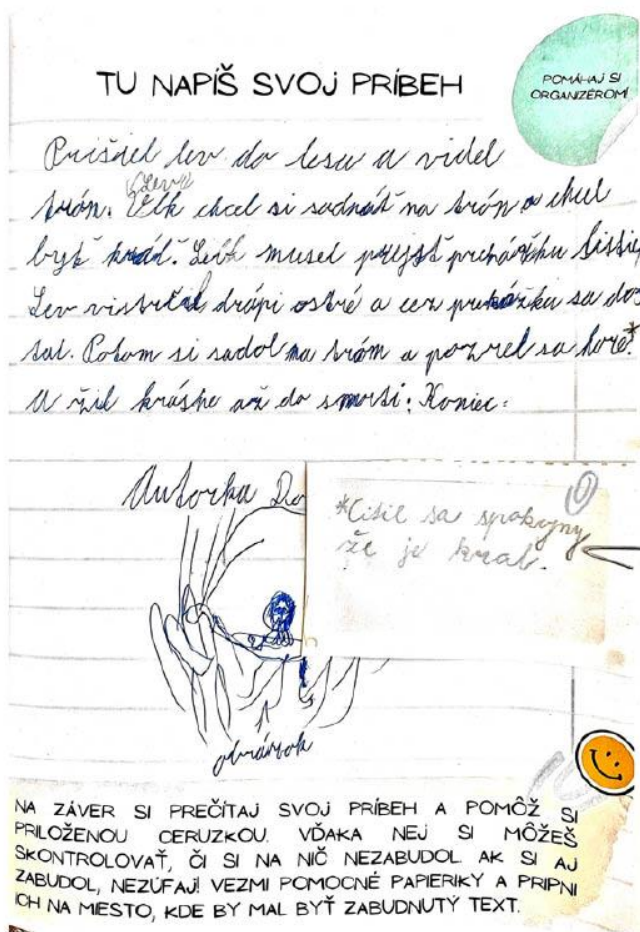 TU NAPÍŠ SVOJ PRÍBEH
POMÁHAJ SI
ORGANIZÉROM!
Prišiel lev do lesa a videl
Leva
trón. Vlk chcel si sadnúť na trón a chcel
byť kráľ. musel prejsť prekážku
Lev vistrčil drápi ostré a cez prekážku sa do
tal. Potom si sadol na trón a pozrel sa hore.*
A žil krásne až do smrti. Koniec.
Autorka Do
*Cítil sa spokojny
že je kral.
obrázok
NA ZÁVER SI PREČÍTAJ SVOJ PRÍBEH A POMÔŽ SI
PRILOŽENOU CERUZKOU. VĎAKA NEJ SI MÔŽEŠ
SKONTROLOVAŤ, ČI SI NA NIČ NEZABUDOL. AK SI AJ
ZABUDOL, NEZÚFAJ! VEZMI POMOCNÉ PAPIERIKY A PRIPNI
ICH NA MIESTO, KDE BY MAL BYŤ ZABUDNUTÝ TEXT.